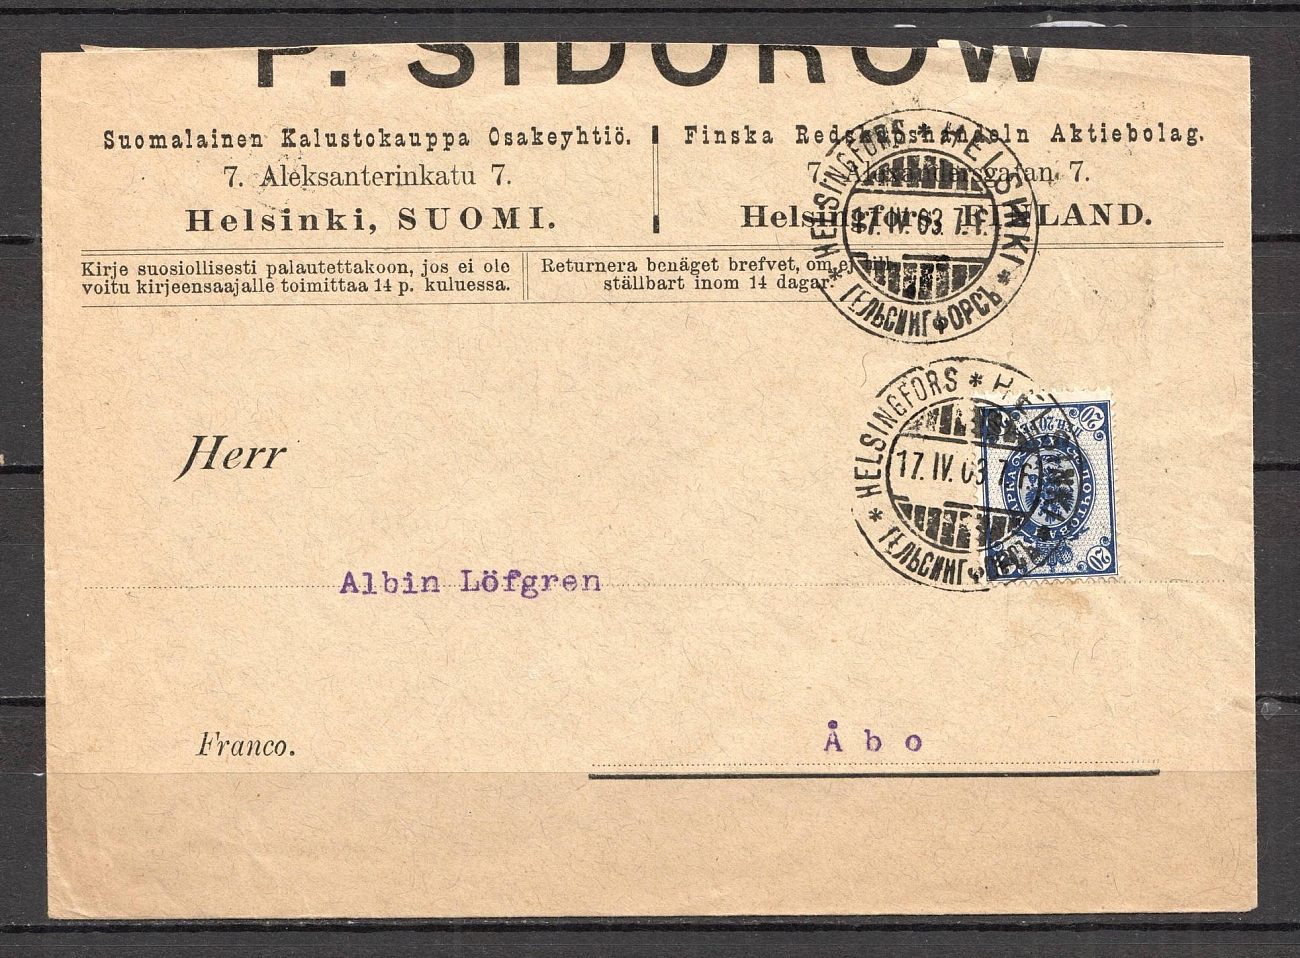 P. SIDOROW
Suomalainen Kalustokauppa Osakeyhtiö.
7. Aleksanterinkatu 7.
Helsinki, SUOMI.
Finska Redskapshandeln Aktiebolag.
7. Alexandersgatan 7.
Helsingfors, FINLAND.
Kirje suosiollisesti palautettakoon, jos ei ole
voitu kirjeensaajalle toimittaa 14 p. kuluessa.
Returnera benäget brefvet, om ej till-
ställbart inom 14 dagar.
* HELSINGFORS * HELSINKI *
17. IV. 03. 7. F.
ГЕЛЬСИНГФОРСЪ
* HELSINGFORS * HELSINKI *
17. IV. 03 7. F.
ГЕЛЬСИНГФОРСЪ
20
20
Herr
Albin Löfgren
Franco.
Åbo